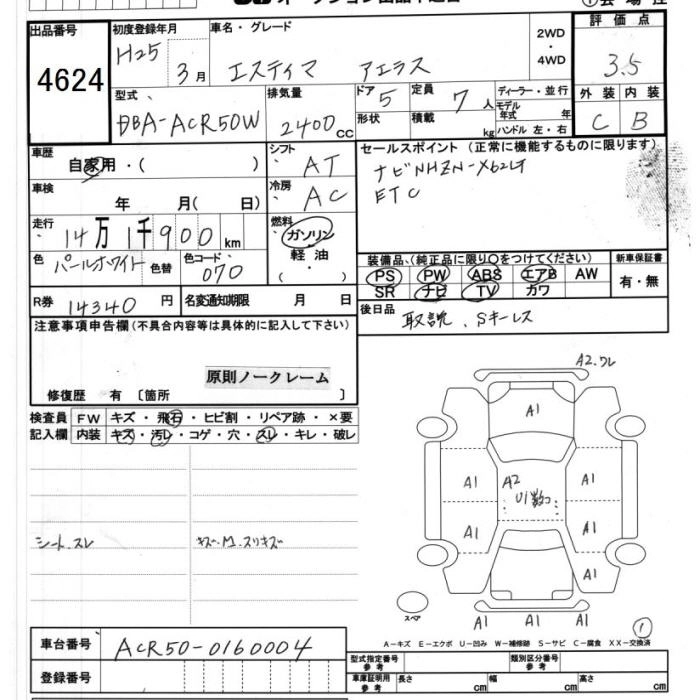 出品番号 初度登録年月 車名・グレード 2WD ・ 4WD 評価点
4624 H25 3月 エスティマ アエラス 3.5
型式 DBA-ACR50W 排気量 2400cc ドア 5 形状 定員 7人 積載 kg ディーラー・並行 モデル年式 年 ハンドル 左・右 外装 C 内装 B
車歴 自家用・( ) シフト AT セールスポイント(正常に機能するものに限ります)
ナビNHZN-X62G
ETC
車検 年 月( 日) 冷房 AC
走行 14万1千900km 燃料 ガソリン 軽油 ( ・ )
色 パールホワイト 色替 色コード 070
装備品、(純正品に限り○をつけてください) 新車保証書
PS PW ABS エアB AW 有・無
SR ナビ TV カワ
R券 14340円 名変通知期限 月 日 後日品 取説、Sキーレス
注意事項申告欄(不具合内容等は具体的に記入して下さい)
原則ノークレーム
修復歴 有〔箇所 〕
検査員 FW キズ・飛石・ヒビ割・リペア跡・×要
記入欄 内装 キズ・汚レ・コゲ・穴・スレ・キレ・破レ
シート、スレ キズ、M、スリキズ
A2.ワレ
A1
A1 A2 A1
U1数コ
A1 A1
A1
A1 A1 A1
スペア 1
A-キズ E-エクボ U-凹み W-補修跡 S-サビ C-腐食 XX-交換済
車台番号 ACR50-0160004
型式指定番号 参考 類別区分番号 参考
登録番号 車庫証明用 参考 長さ cm 幅 cm 高さ cm